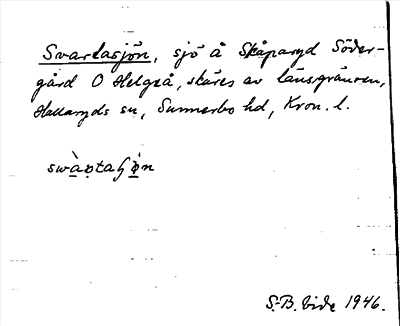 Svartasjön, sjö å Skåparyd Söder-
gård O Helgeå, skäres av länsgränsen,
Hallaryds sn, Sunnerbo hd, Kron. l.
S.-B. Vide 1946.